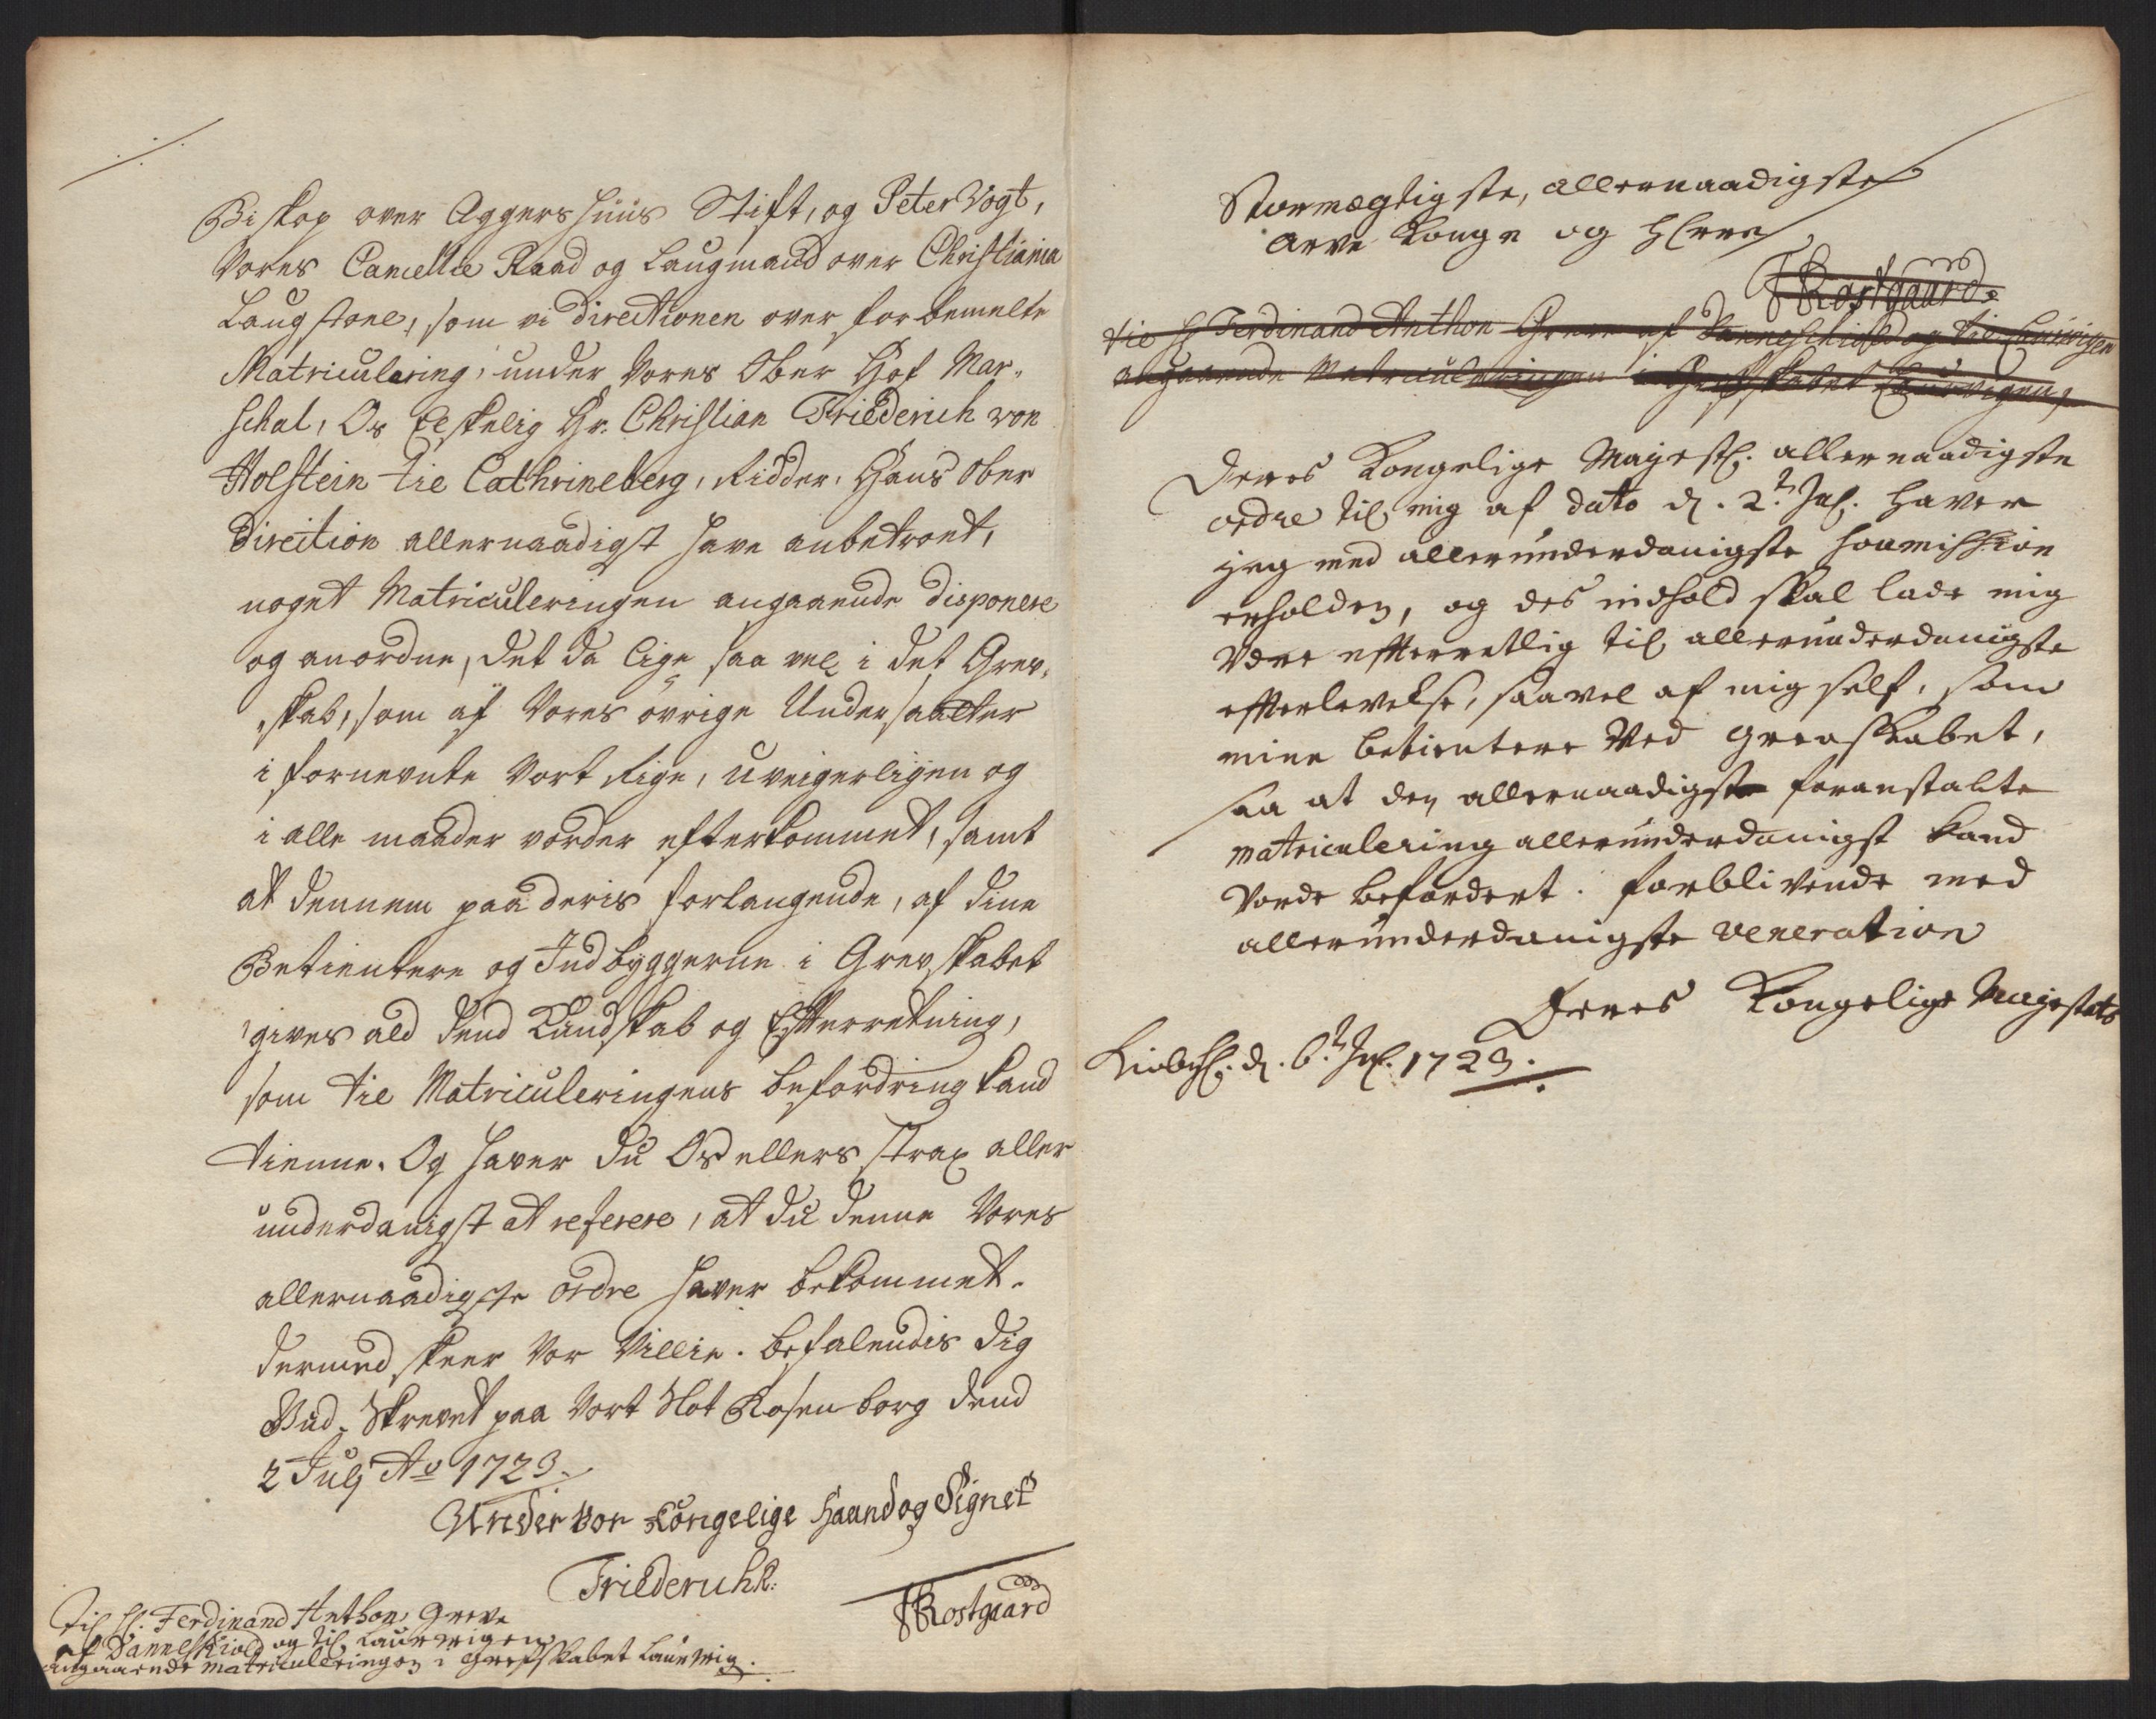 Biskop over Aggershuus Stift, og Peter Vogt,
Vores Cancellie Raad og Laugmand over Christiania
Laugstoel, som vi Directionen over forbemelte
Matriculering, under Vores Ober Hof Mar-
schal, Os Elskelig Hr. Christian Friederich von
Holstein til Cathrineberg, Ridder, Hans Ober
Direction allernaadigst have anbetroet,
noget Matriculeringen angaaende disponere
og anordne, det da lige saa vel i det Grev-
skab, som af Vores övrige Undersaatter
i fornevnte Vort Rige, uveigerligen og
i alle maader vorder efterkommet, samt
at dennem paa deris forlangende, af dine
Betientere og Indbyggerne i Grevskabet
gives ald dend Kundskab og Efterretning,
som til Matriculeringens befordring kand
tienne. Og haver du Os ellers strax aller
underdanigst at referere, at du denne Vores
allernaadigste ordre haver bekommet.
Dermed skeer Vor Villie. Befalendis dig
Gud. Skrevet paa Vort Slot Rosenborg dend
2 Julj Ao 1723.
Under vor Kongelige Haand og Signet
Friderich R.
FRostgaard
Til H. Ferdinand Anthon Greve
af Danneskiold og til Laurwigen
angaaende matriculeringen i Grefskabet Laurwig.
Stormægtigste, allernaadigste
Arve Konge og Herre
FRostgaard
til H Ferdinand Anthon Greve af Danneschiold og til Laurvigen
angaaende Matriculeringen i Grefskabet Laurvigen
Deres Kongelige Mayestt: allernaadigste
ordre til mig af dato d. 2t Jul: haver
jeg med allerunderdanigste soumission
erholden, og des indhold skal lade mig
være efterretlig til allerunderdanigste
efterlevelse, saavel af mig self, som
mine betientere ved Grevskabet,
saa at den allernaadigst foranstalte
matriculering allerunderdanigst kand
vorde befordert. forblivende med
allerunderdanigste veneration
Deres Kongelige Mayestets
Kiöbh: d. 6t Jul: 1723.